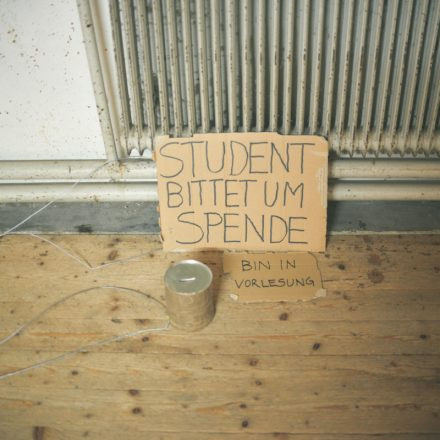 STUDENT
BITTET UM
SPENDE
BIN IN
VORLESUNG